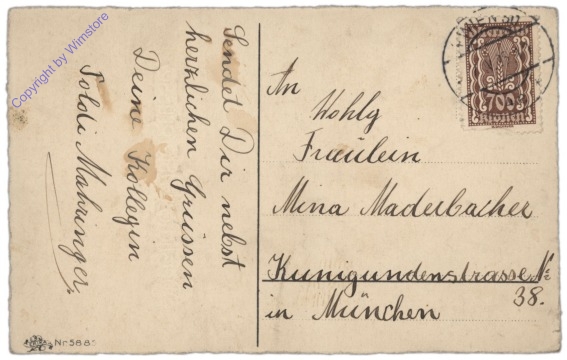 Sendet Dir nebst
herzlichen Grüssen
Deine Kollegin
Poldi Mahringer
An
Wohlg
Fräulein
Mina Maderbacher
Kunigundenstrasse №
38.
in München
WIEN 50
700
Copyright by Wimstore